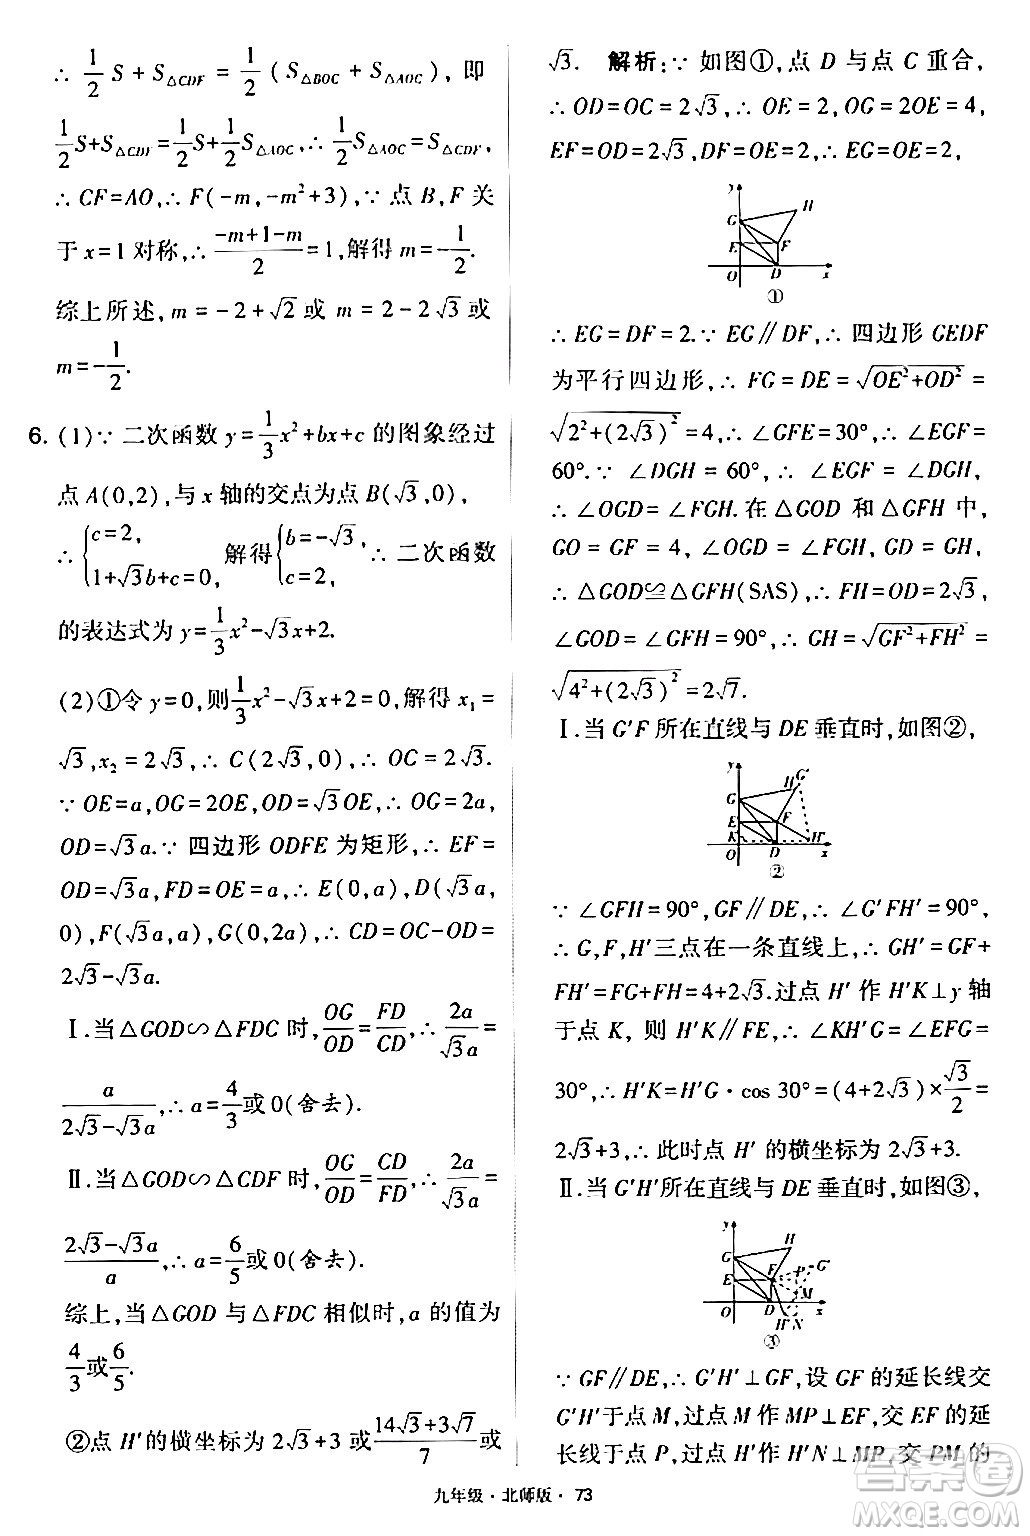 ∴ 1/2 S + S△CDF = 1/2 (S△BOC + S△AOC), 即
1/2 S+S△CDF=1/2 S+1/2 S△AOC,∴ 1/2 S△AOC=S△CDF,
∴ CF=AO,∴ F(-m,-m²+3),∵ 点 B,F 关
于 x=1 对称,∴ (-m+1-m)/2=1,解得 m=-1/2.
综上所述, m=-2+√2 或 m=2-2√3 或
m=-1/2.
6. (1)∵ 二次函数 y=1/3 x²+bx+c 的图象经过
点 A(0,2),与 x 轴的交点为点 B(√3,0),
∴ {c=2, 1+√3b+c=0, 解得{b=-√3, c=2. ∴ 二次函数
的表达式为 y=1/3 x²-√3x+2.
(2)①令 y=0,则1/3 x²-√3x+2=0,解得 x₁=
√3,x₂=2√3,∴ C(2√3,0),∴ OC=2√3.
∵ OE=a,OG=2OE,OD=√3OE,∴ OG=2a,
OD=√3a.∵ 四边形 ODFE 为矩形,∴ EF=
OD=√3a,FD=OE=a,∴ E(0,a),D(√3a,
0),F(√3a,a),G(0,2a),∴ CD=OC-OD=
2√3-√3a.
Ⅰ.当△GOD∽△FDC 时,OG/OD=FD/CD,∴ 2a/√3a=
a/(2√3-√3a),∴ a=4/3或 0(舍去).
Ⅱ.当△GOD∽△CDF 时,OG/OD=CD/FD,∴ 2a/√3a=
(2√3-√3a)/a,∴ a=6/5或 0(舍去).
综上,当△GOD 与△FDC 相似时,a 的值为
4/3或6/5.
②点 H′的横坐标为 2√3+3 或(14√3+3√7)/7或
√3. 解析:∵ 如图①,点 D 与点 C 重合,
∴ OD=OC=2√3,∴ OE=2,OG=2OE=4,
EF=OD=2√3,DF=OE=2,∴ EG=OE=2,
y
G
H
E
F
O
D
x
①
∴ EG=DF=2.∵ EG∥DF,∴ 四边形 GEDF
为平行四边形,∴ FG=DE=√(OE²+OD²)=
√(2²+(2√3)²)=4,∴ ∠GFE=30°,∴ ∠EGF=
60°.∵ ∠DGH=60°,∴ ∠EGF=∠DGH,
∴ ∠OGD=∠FGH.在△GOD 和△GFH 中,
GO=GF=4, ∠OGD=∠FGH, GD=GH,
∴ △GOD≌△GFH(SAS),∴ FH=OD=2√3,
∠GOD=∠GFH=90°,∴ GH=√(GF²+FH²)=
√(4²+(2√3)²)=2√7.
Ⅰ.当 G′F 所在直线与 DE 垂直时,如图②,
y
G
H
G′
E
F
K
H′
O
D
x
②
∵ ∠GFH=90°,GF∥DE,∴ ∠G′FH′=90°,
∴ G,F,H′三点在一条直线上,∴ GH′=GF+
FH′=FG+FH=4+2√3.过点 H′作 H′K⊥y 轴
于点 K, 则 H′K∥FE,∴ ∠KH′G=∠EFG=
30°,∴ H′K=H′G·cos 30°=(4+2√3)×√3/2=
2√3+3,∴ 此时点 H′的横坐标为 2√3+3.
Ⅱ.当 G′H′所在直线与 DE 垂直时,如图③,
y
G
H
E
F
P
G′
M
O
D
x
H′N
③
∵ GF∥DE,∴ G′H′⊥GF,设 GF 的延长线交
G′H′于点 M,过点 M 作 MP⊥EF,交 EF 的延
长线于点 P,过点 H′作 H′N⊥MP,交 PM 的
九年级·北师版·73
答案圈
MXQE.COM